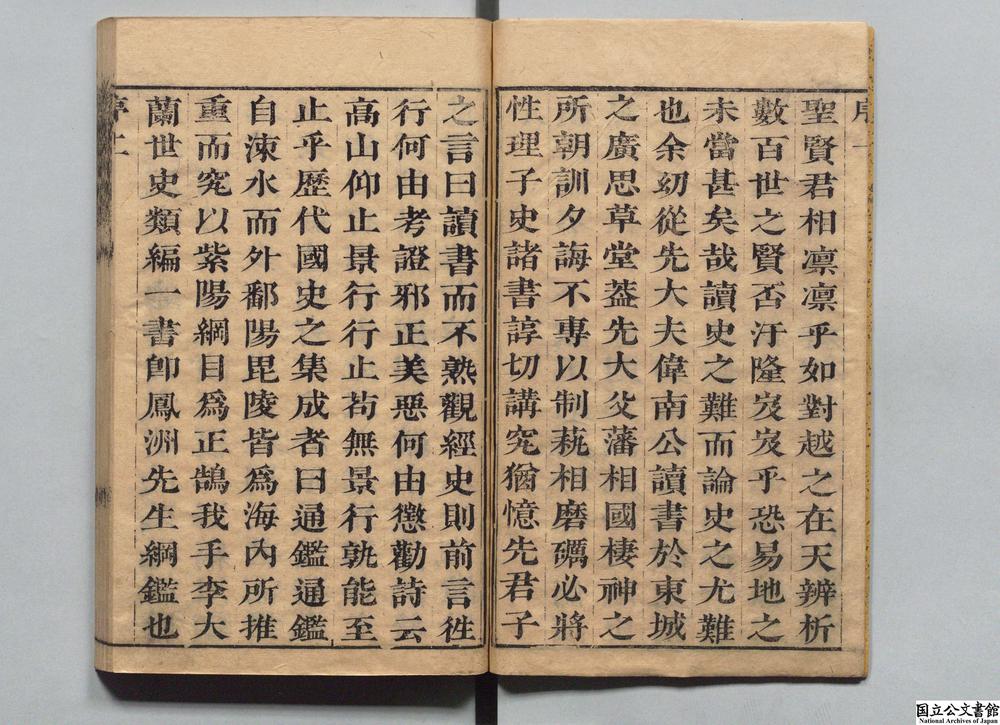 聖賢君相凛凛乎如對越之在天辨析
數百世之賢否汙隆岌岌乎恐易地之
未當甚矣哉讀史之難而論史之尤難
也余幼從先大夫偉南公讀書於東城
之廣思草堂葢先大父藩相國棲神之
所朝訓夕誨不專以制蓺相磨礪必將
性理子史諸書諄切講究猶憶先君子
之言曰讀書而不熟觀經史則前言徃
行何由考證邪正美惡何由懲勸詩云
高山仰止景行行止苟無景行孰能至
止乎歷代國史之集成者曰通鑑通鑑
自涑水而外鄱陽毘陵皆爲海内所推
重而究以紫陽綱目爲正鵠我手李大
蘭世史類編一書卽鳳洲先生綱鑑也
国立公文書館
National Archives of Japan